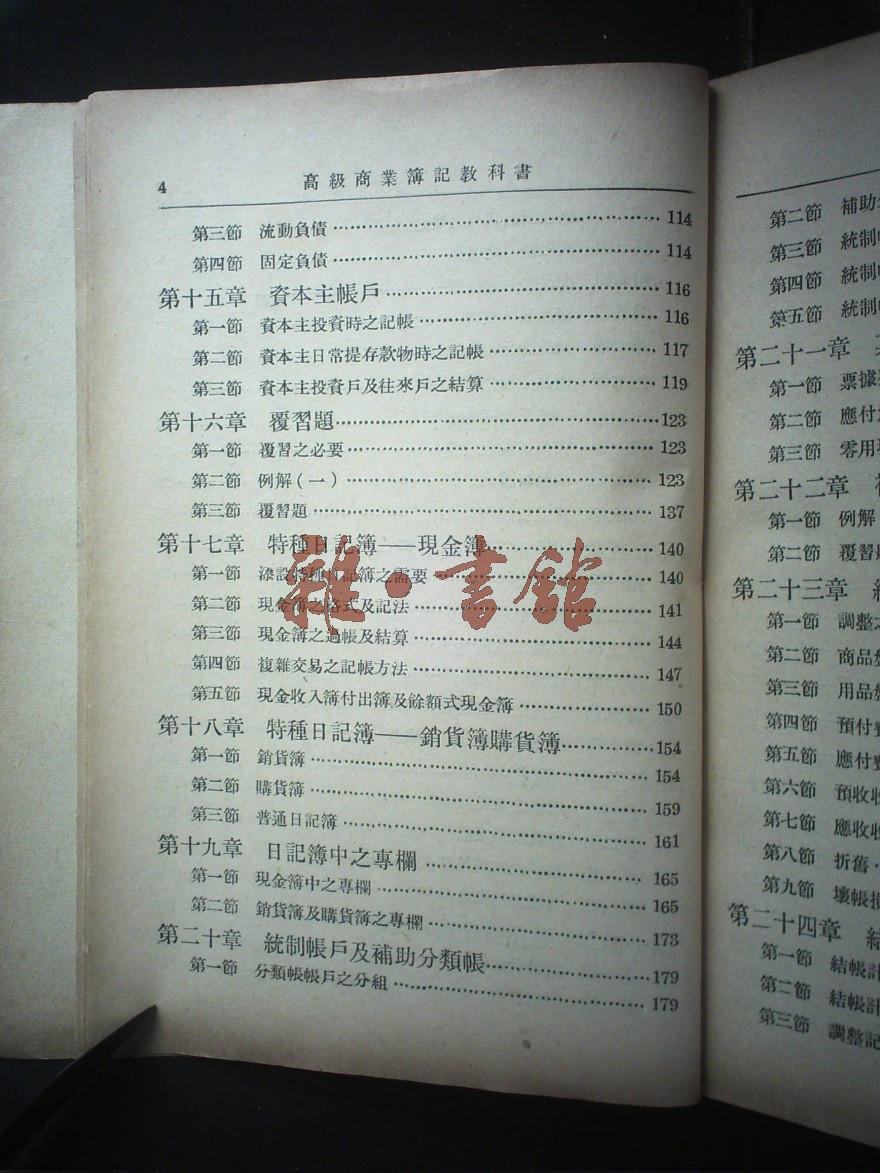 4 高級商業簿記教科書
第三節 流動負債 114
第四節 固定負債 114
第十五章 資本主帳戶 116
第一節 資本主投資時之記帳 116
第二節 資本主日常提存款物時之記帳 117
第三節 資本主投資戶及往來戶之結算 119
第十六章 覆習題 123
第一節 覆習之必要 123
第二節 例解(一) 123
第三節 覆習題 137
第十七章 特種日記簿——現金簿 140
第一節 添設特種日記簿之需要 140
第二節 現金簿之格式及記法 141
第三節 現金簿之過帳及結算 144
第四節 複雜交易之記帳方法 147
第五節 現金收入簿付出簿及餘額式現金簿 150
第十八章 特種日記簿——銷貨簿購貨簿 154
第一節 銷貨簿 154
第二節 購貨簿 159
第三節 普通日記簿 161
第十九章 日記簿中之專欄 165
第一節 現金簿中之專欄 165
第二節 銷貨簿及購貨簿之專欄 173
第二十章 統制帳戶及補助分類帳 179
第一節 分類帳帳戶之分組 179
雜·書館
第二節 補助
第三節 統制
第四節 統制
第五節 統制
第二十一章
第一節 票據
第二節 應付
第三節 零用
第二十二章
第一節 例解
第二節 覆習
第二十三章
第一節 調整
第二節 商品
第三節 用品
第四節 預付
第五節 應付
第六節 預收
第七節 應收
第八節 折舊
第九節 壞帳
第二十四章
第一節 結帳
第二節 結帳
第三節 調整記